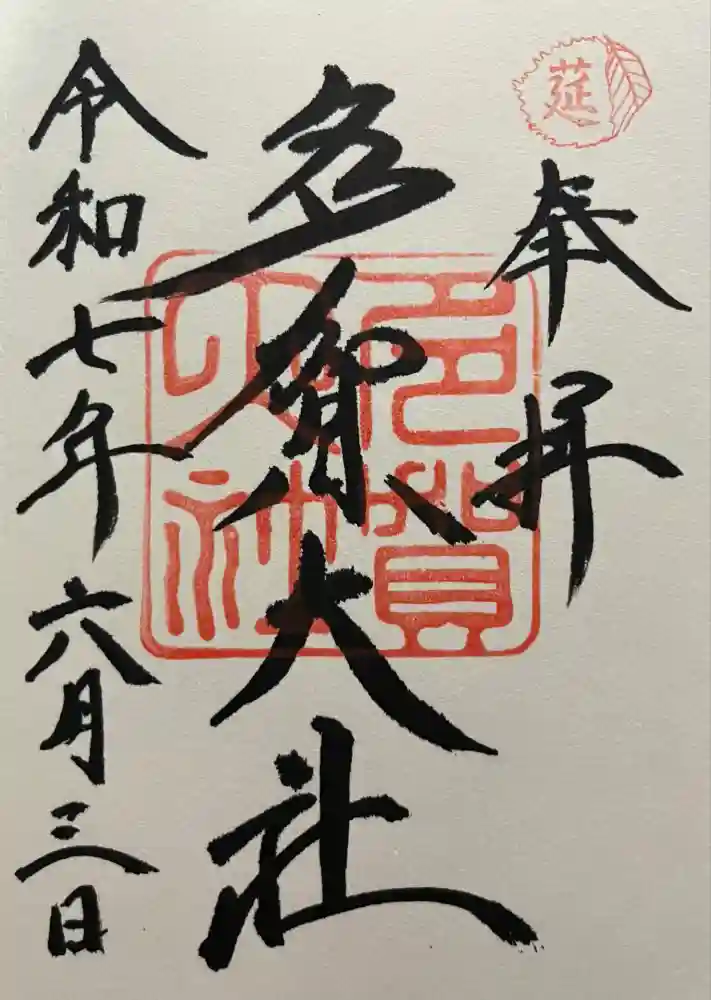 莚
奉拝
多賀大社
多賀大社
令和七年六月三日